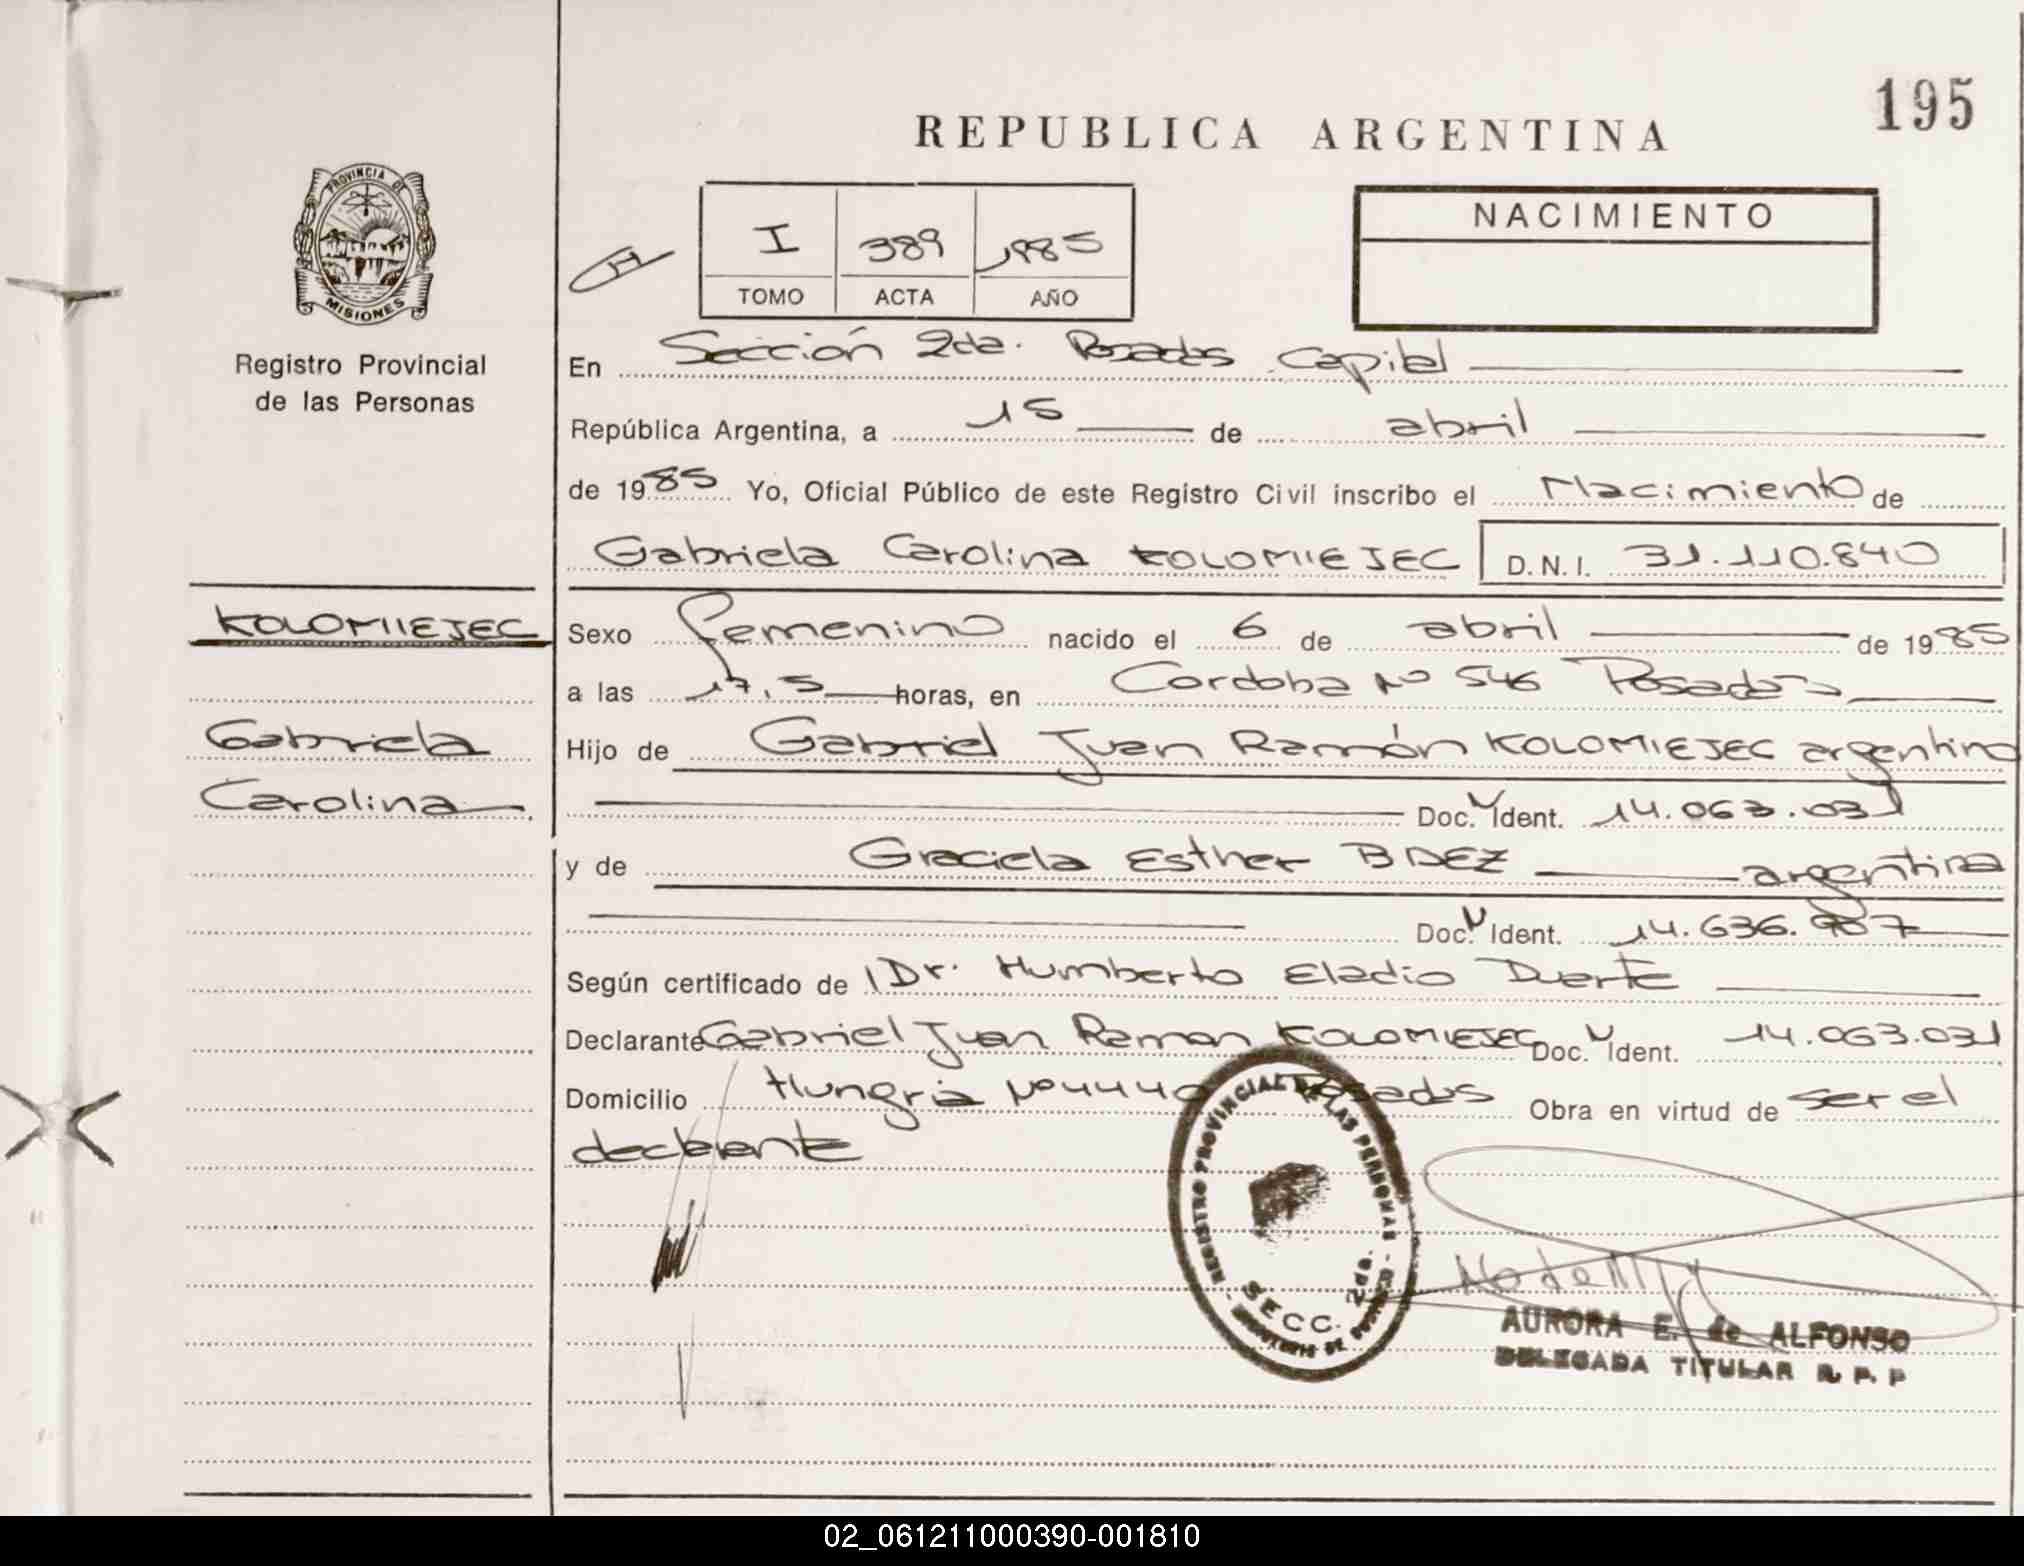 195
REPUBLICA ARGENTINA
PROVINCIA DE
MISIONES
Registro Provincial
de las Personas
I 389 1985
TOMO ACTA AÑO
NACIMIENTO
En Sección 2da. Posadas Capital
República Argentina, a 15 de abril
de 1985 Yo, Oficial Público de este Registro Civil inscribo el Nacimiento de
Gabriela Carolina KOLOMIEJEC D.N.I. 31.110.840
KOLOMIIEJEC
Gabriela
Carolina
Sexo femenino nacido el 6 de abril de 1985
a las 17,5 horas, en Cordoba Nº 546 Posadas
Hijo de Gabriel Juan Ramón KOLOMIEJEC argentino
Doc. Ident. 14.063.031
y de Graciela Esther BAEZ argentina
Doc. Ident. 14.636.
Según certificado de Dr. Humberto Eladio Duarte
Declarante Gabriel Juan Ramon KOLOMIEJEC Doc. Ident. 14.063.031
Domicilio Hungria Nº 4440 Posadas Obra en virtud de ser el
declarante
REGISTRO PROVINCIAL DE LAS PERSONAS
SECC. 2da.
AURORA E. de ALFONSO
DELEGADA TITULAR R. P. P
02_061211000390-001810